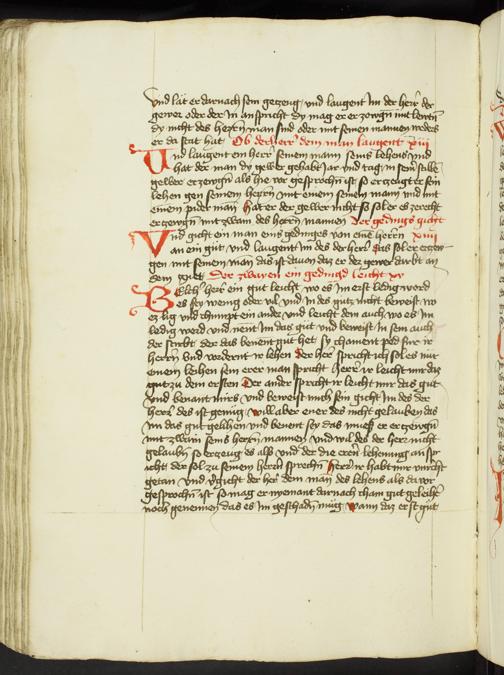 Vnd lät er darnach sein getzeug vnd laugent im der herr der
gewer oder der in anspricht dy mag er er zewgn mit lewtn
dy nicht des herrn man sind oder mit seinen mannen weders
er da stat hat Ob der herr dem man laugent xiii
Vnd laugent ein herr seinem mann seins lehens vnd
hat der man dy gewer gehabt Jar vnd tag in sein stille
gewer er zewgn als hie vor gesprochn ist so er zewgt er sein
lehen gen seinem herrn mit einem seinem mann vnd mit
einem seinem man hat er der gewer nicht so sol er es recht
ertzewgn mit zwain des herrn mannen Der gedings gicht
Vnd gicht ein man eins gedinges von eine herren xiiii
an ein gut vnd laugent im des der herr das sol er ertzew
gen mit seinem man das ist dauon daz er der gewer darbt an
dem gut Der zwayen ein geding leicht xv
Welch herr ein gut leicht wo es im erst ledig werd
es sey wenig oder vil vnd in des gutz nicht beweist wo
ez lig vnd chumpt ein ander vnd leicht dem auch wo es im
ledig werd vnd nent im das gut vnd beweist in sein auch
der stirbt der das benent gut het sy choment ped fur ir
herrn vnd vordernt ir lehen der herr spricht ich sol es nur
einem leihen sein erer man spricht herre ir leicht mir daz
gut zu dem ersten Der ander spricht ir leicht mir das gut
vnd benant mirs vnd beweist mich sein gicht im des der
herr des ist genug wil aber ener des nicht gelauben das
im das gut gelihen vnd benent sey das mues er ertzewgn
mit zwain seins herrn mannen vnd wil des der herr nicht
gelaubn so ertzeug es als vnd der die eren lehenung an spr
icht der sol zu seinem herrn sprechn herr ir habt mir vnrecht
getan vnd vergicht der herr dem man des lehens als da vor
gesprochn ist so mag er nyemant darnach chain gut geleihn
noch genennen das es im geschadn mug wann daz erst gut